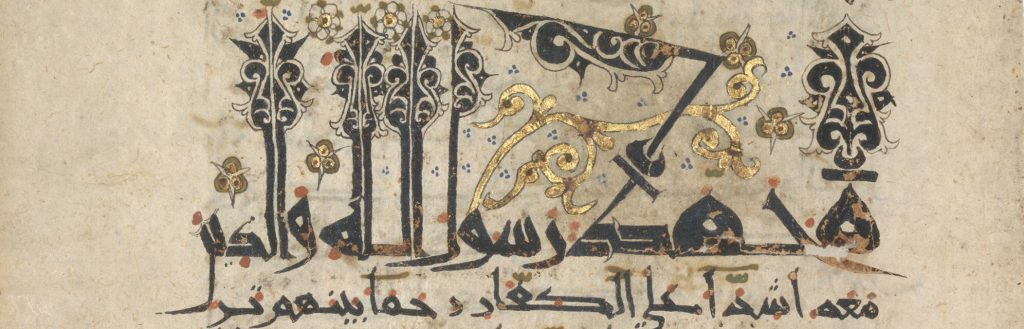 محمد رسول الله والذين
معه اشدآء على الكفار رحمآ بينهم تر